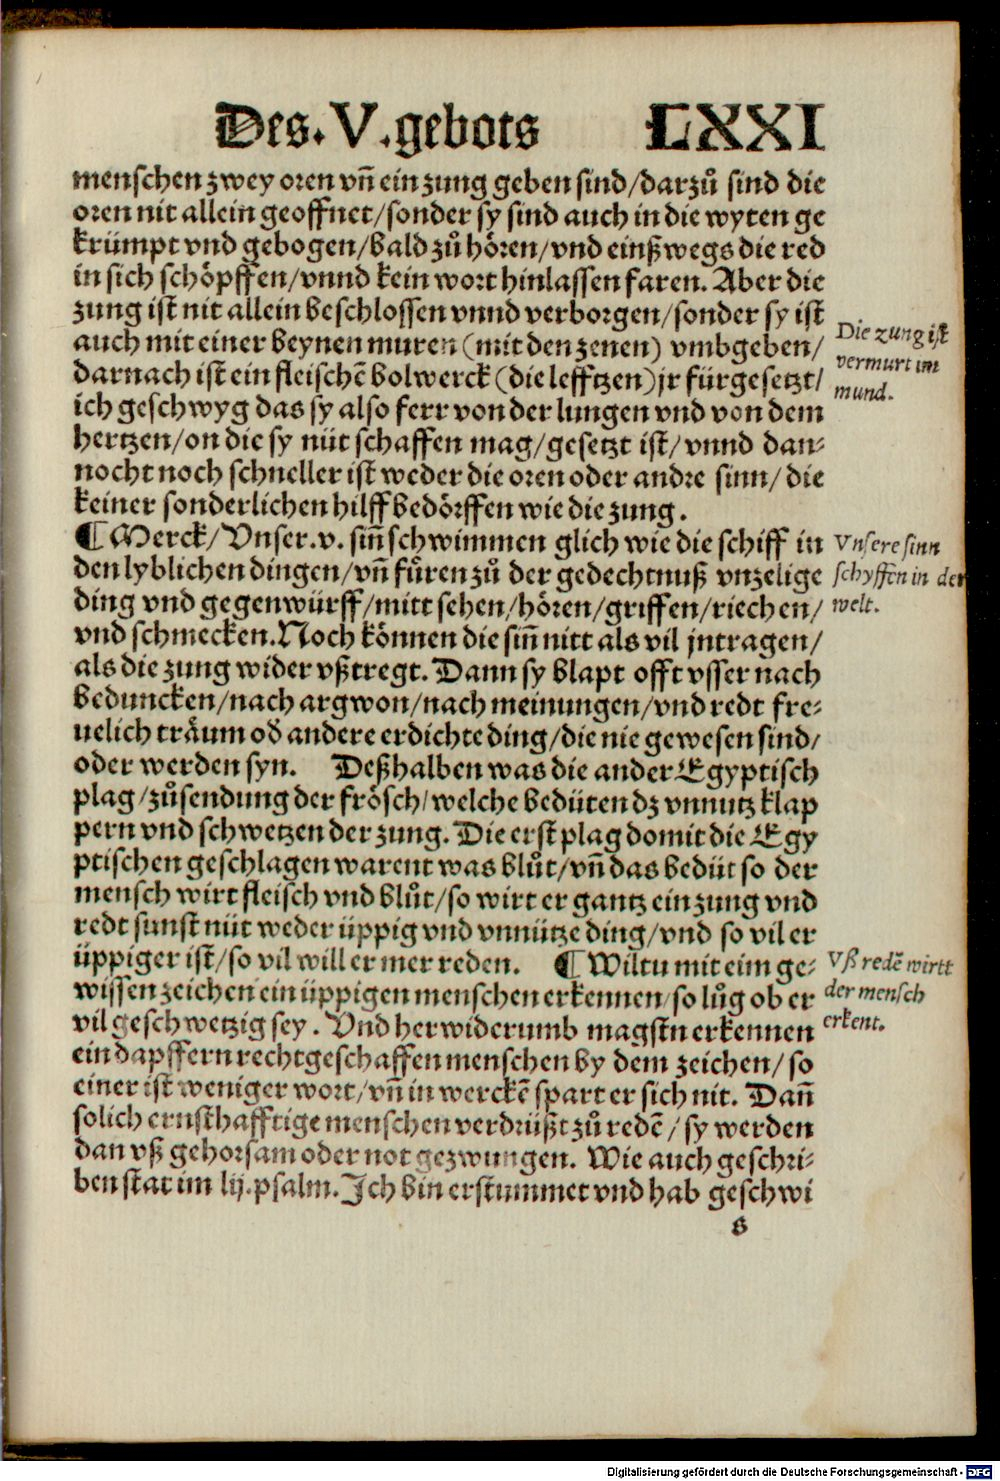 Des. V. gebots LXXI
menschen zwey oren vn̄ ein zung geben sind/darzů sind die
oren nit allein geoffnet/sonder sy sind auch in die wyten ge
krümpt vnd gebogen/bald zů hören/vnd einß wegs die red
in sich schöpffen/vnnd kein wort hinlassen faren. Aber die
zung ist nit allein beschlossen vnnd verborgen/sonder sy ist
auch mit einer beynen muren (mit den zenen) vmbgeben/
darnach ist ein fleischē bolwerck (die lefftzen) jr fürgesetzt/
ich geschwyg das sy also ferr von der lungen vnd von dem
hertzen/on die sy nüt schaffen mag/gesetzt ist/vnnd dan⸗
nocht noch schneller ist weder die oren oder andre sinn/die
keiner sonderlichen hilff bedörffen wie die zung.
Die zung ist
vermurt im
mund.
¶ Merck/Vnser .v. sin̄ schwimmen glich wie die schiff in
den lyblichen dingen/vn̄ fůren zů der gedechtnuß vnzelige
ding vnd gegenwürff/mitt sehen/hören/griffen/riechen/
vnd schmecken. Noch können die sin̄ nitt als vil jntragen/
als die zung wider vßtregt. Dann sy blapt offt vsser nach
beduncken/nach argwon/nach meinungen/vnd redt fre⸗
uelich träum od̄ andere erdichte ding/die nie gewesen sind/
oder werden syn. Deßhalben was die ander Egyptisch
plag/zůsendung der frösch/welche bedüten dz vnnutz klap
pern vnd schwetzen der zung. Die erst plag domit die Egy
ptischen geschlagen warent was blůt/vn̄ das bedüt so der
mensch wirt fleisch vnd blůt/so wirt er gantz ein zung vnd
redt sunst nüt weder üppig vnd vnnütze ding/vnd so vil er
üppiger ist/so vil will er mer reden. ¶ Wiltu mit eim ge⸗
wissen zeichen ein üppigen menschen erkennen/so lůg ob er
vil geschwetzig sey. Vnd herwiderumb magstu erkennen
ein dapffern rechtgeschaffen menschen by dem zeichen/so
einer ist weniger wort/vn̄ in werckē spart er sich nit. Dan̄
solich ernsthafftige menschen verdrüßt zů redē/sy werden
dan vß gehorsam oder not gezwungen. Wie auch geschri⸗
ben stat im lij. psalm. Ich bin erstummet vnd hab geschwi
Vnsere sinn
schyffen in der
welt.
Vß redē wirtt
der mensch
erkent.
Digitalisierung gefördert durch die Deutsche Forschungsgemeinschaft - DFG